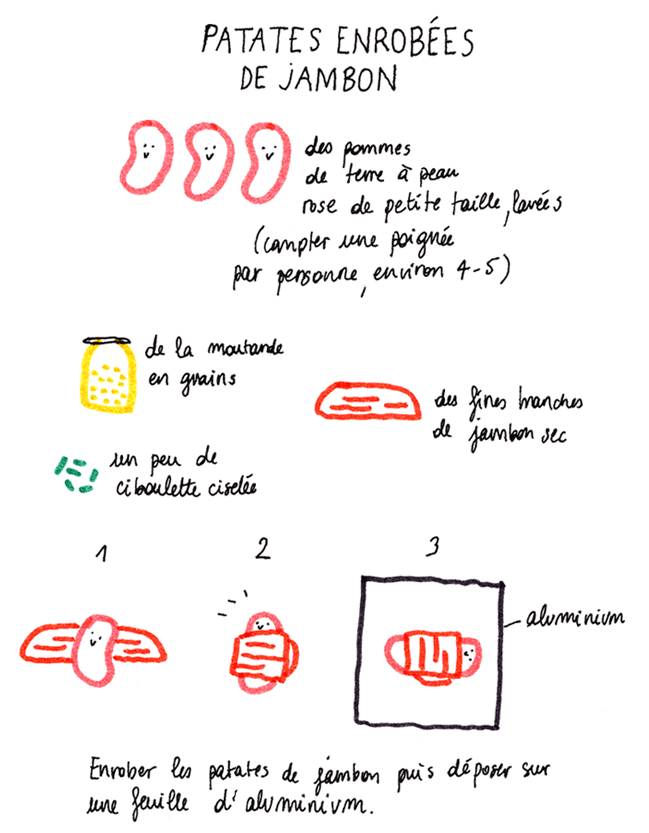 PATATES ENROBÉES
DE JAMBON
des pommes
de terre à peau
rose de petite taille, lavées
(compter une poignée
par personne, environ 4-5)
de la moutande
en grains
des fines tranches
de jambon sec
un peu de
ciboulette ciselée
1
2
3
aluminium
Enrober les patates de jambon puis déposer sur
une feuille d'aluminium.